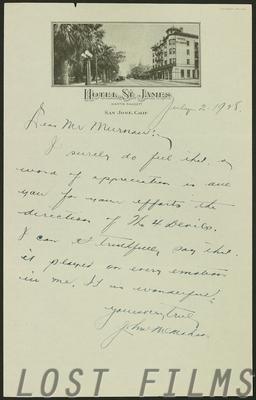 HOTEL ST. JAMES
SAN JOSE, CALIF.
July 2 1928.
Dear Mr Murnau:-
I surely do feel that a
word of appreciation is due
you for your efforts the
direction of The 4 Devils.
I can truthfully say that
it played on every emotion
in me. It is wonderful.
yours very truly
John
LOST FILMS